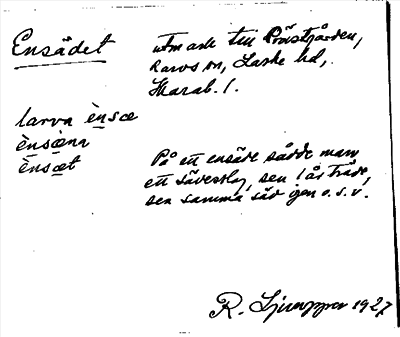 Ensädet
utmark till Prästgården,
Larvs sn, Laske hd,
Skarab. l.
larva ènsæ
ènsæna
ènsæt
På ett ensäde sådde man
ett sädesslag, sen 1 år träde,
sen samma säd igen o.s.v.
R. Ljunggren 1927